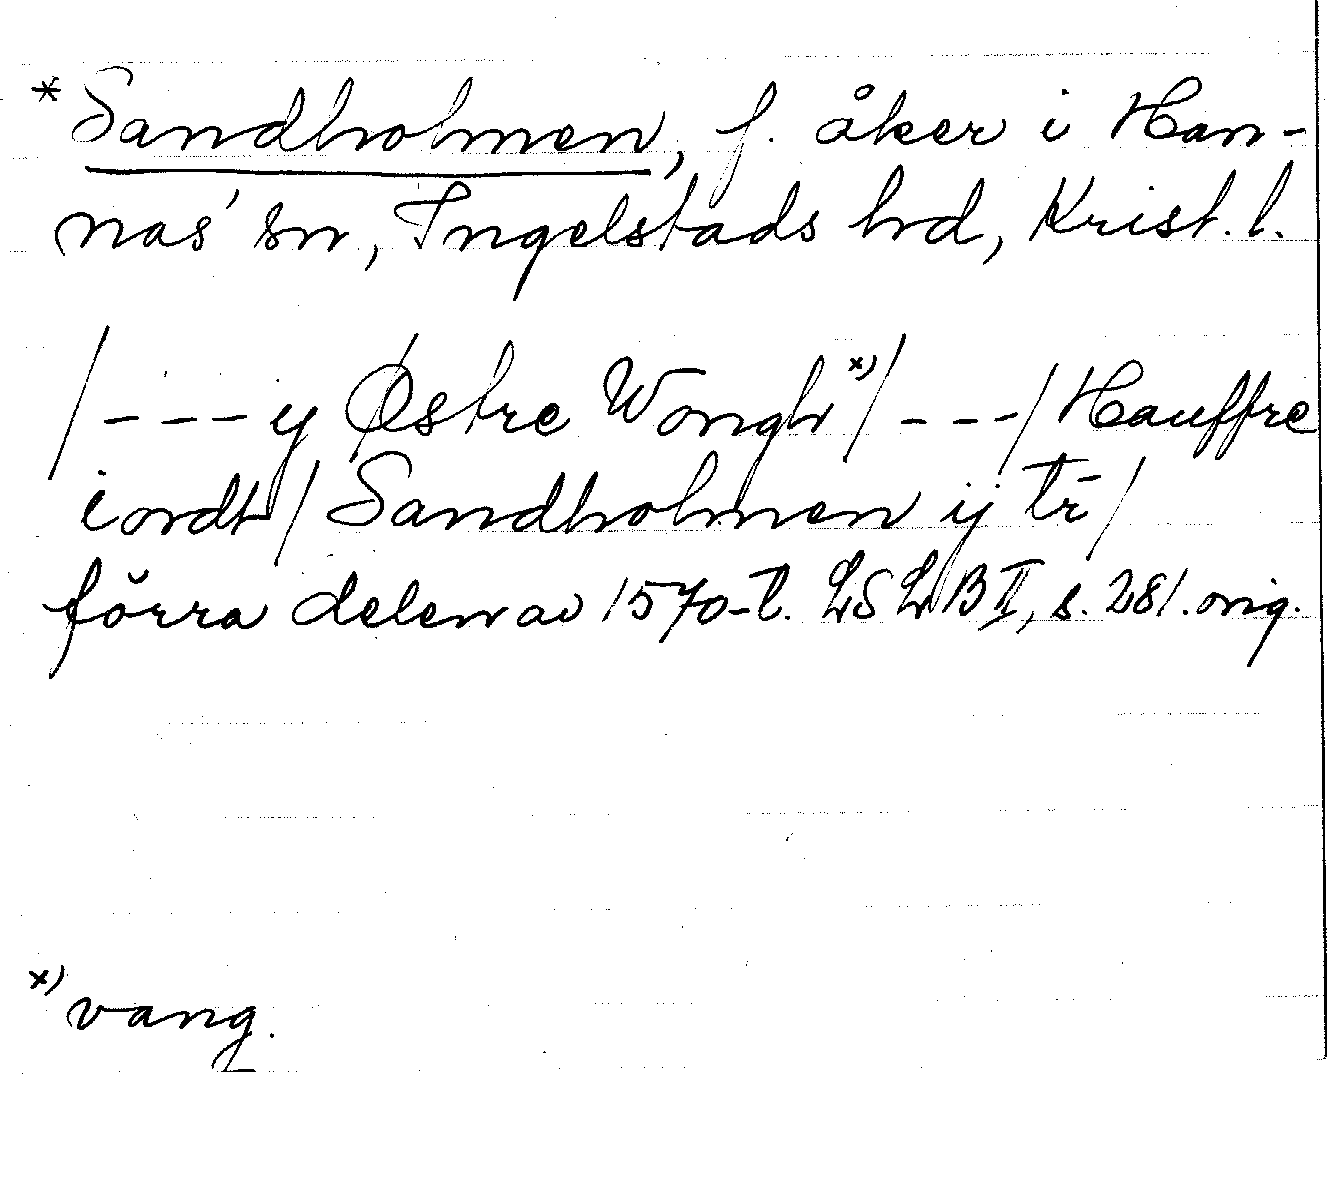 * Sandholmen, f. åker i Han-
nas' sn, Ingelstads hd, Krist. l.
/---y Østre Wongh x)/---/ Hauffre
iordt/ Sandholmen ij tr̄/
förra delen av 1570-t. LSLB I, s. 281. orig.
x) vang.